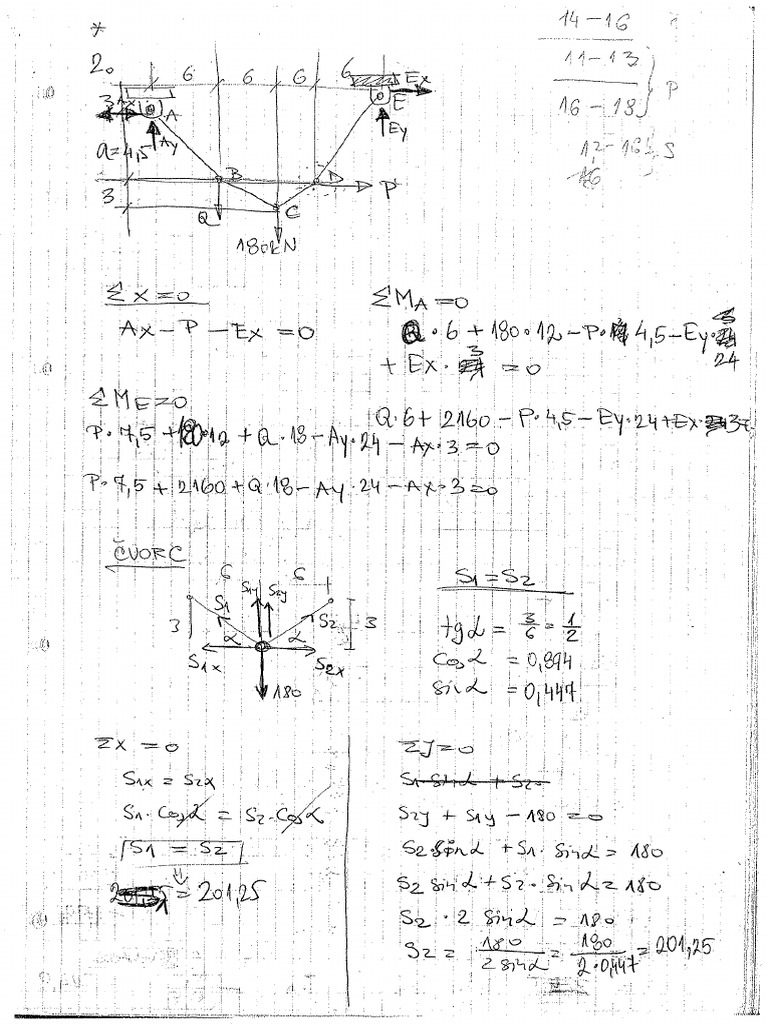 *
2.
14-16
11-13
16-18
P
12-16
S
16
6 6 6 6
Ex
3
A
E
Ay
Ey
a=4,5
B
D
P
3
Q
C
180kN
ΣX=0
Ax-P-Ex=0
ΣMA=0
Q·6+180·12-P·4,5-Ey·24
+Ex·3=0
ΣME=0
P·7,5+180·12+Q·18-Ay·24-Ax·3=0
Q·6+2160-P·4,5-Ey·24+Ex·3=
P·7,5+2160+Q·18-Ay·24-Ax·3=0
ČVOR C
6 6
S1y S2y
S1
S2
3
α α
3
S1x
S2x
180
S1=S2
tgα=3/6=1/2
cosα=0,894
sinα=0,447
ΣX=0
S1x=S2x
S1·cosα=S2·cosα
S1=S2
=201,25
ΣY=0
S1·sinα+S2
S2y+S1y-180=0
S2·sinα+S1·sinα=180
S2sinα+S2·sinα=180
S2·2sinα=180
S2=180/2sinα=180/2·0,447=201,25